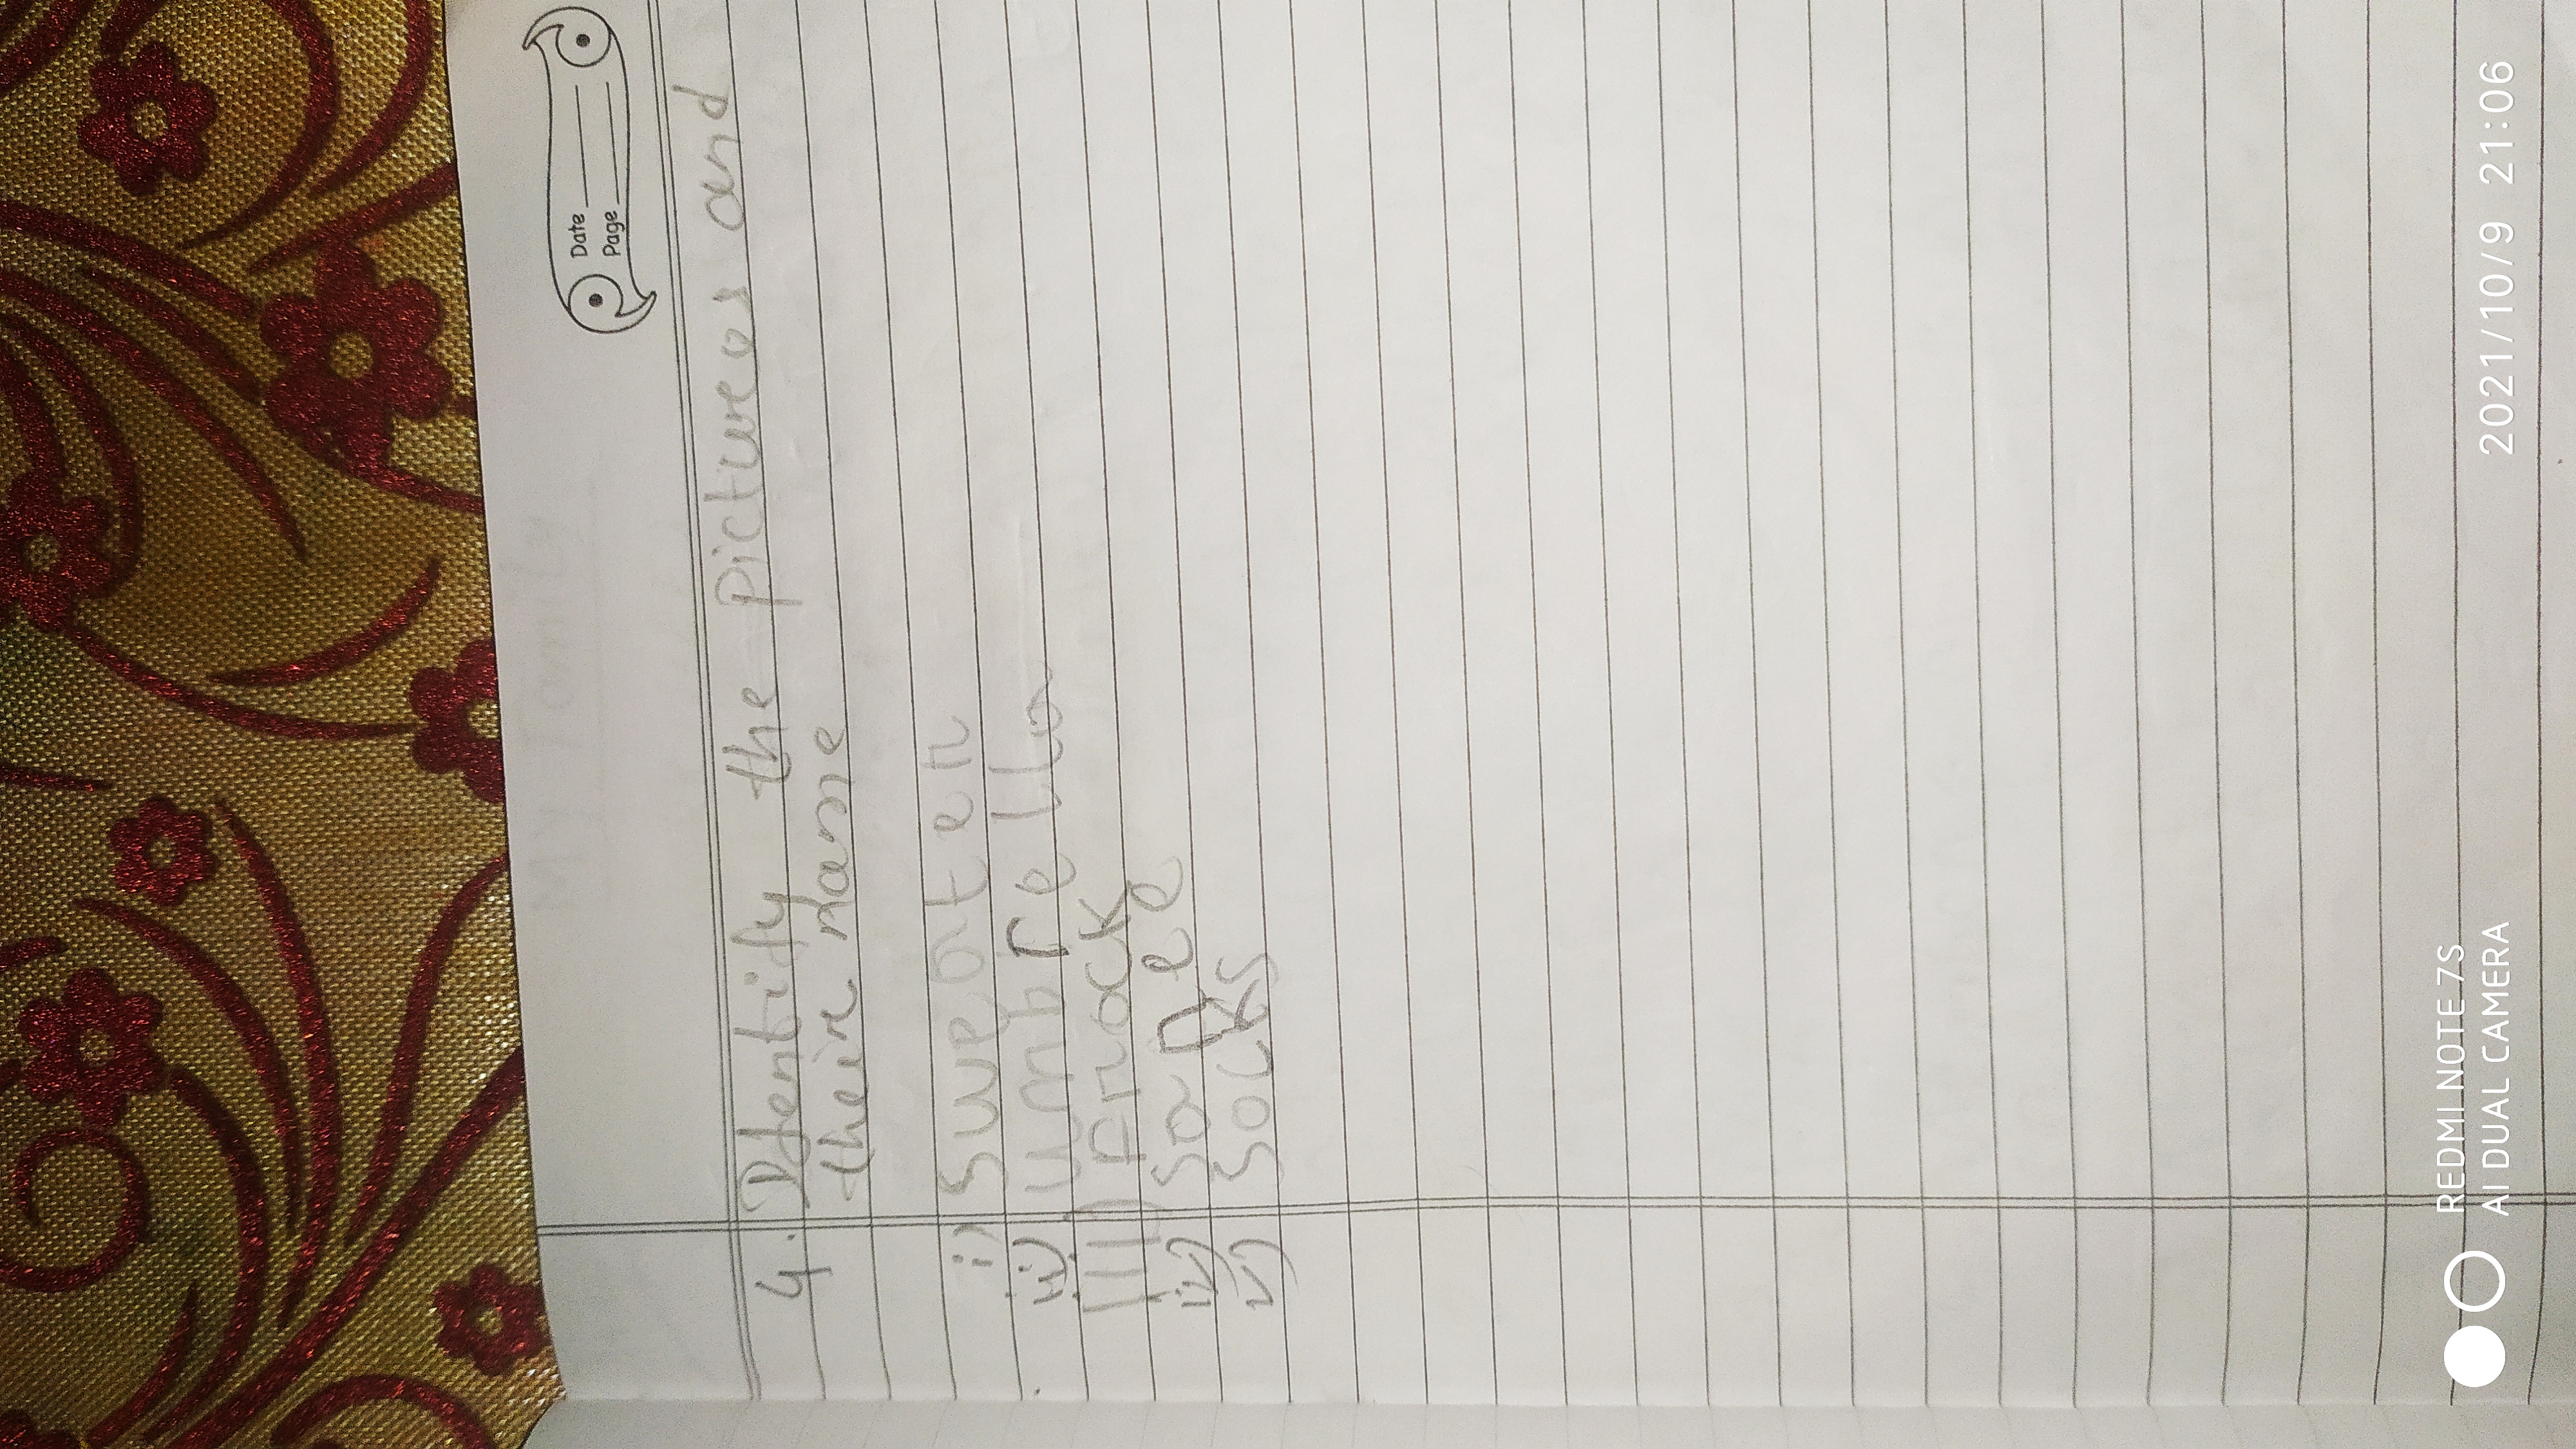 Date
Page
4. Identify the pictures and
their name
i) Sweater
ii) umbrella
iii) Frock
iv) Saree
v) Socks
REDMI NOTE 7S
AI DUAL CAMERA
2021/10/9 21:06